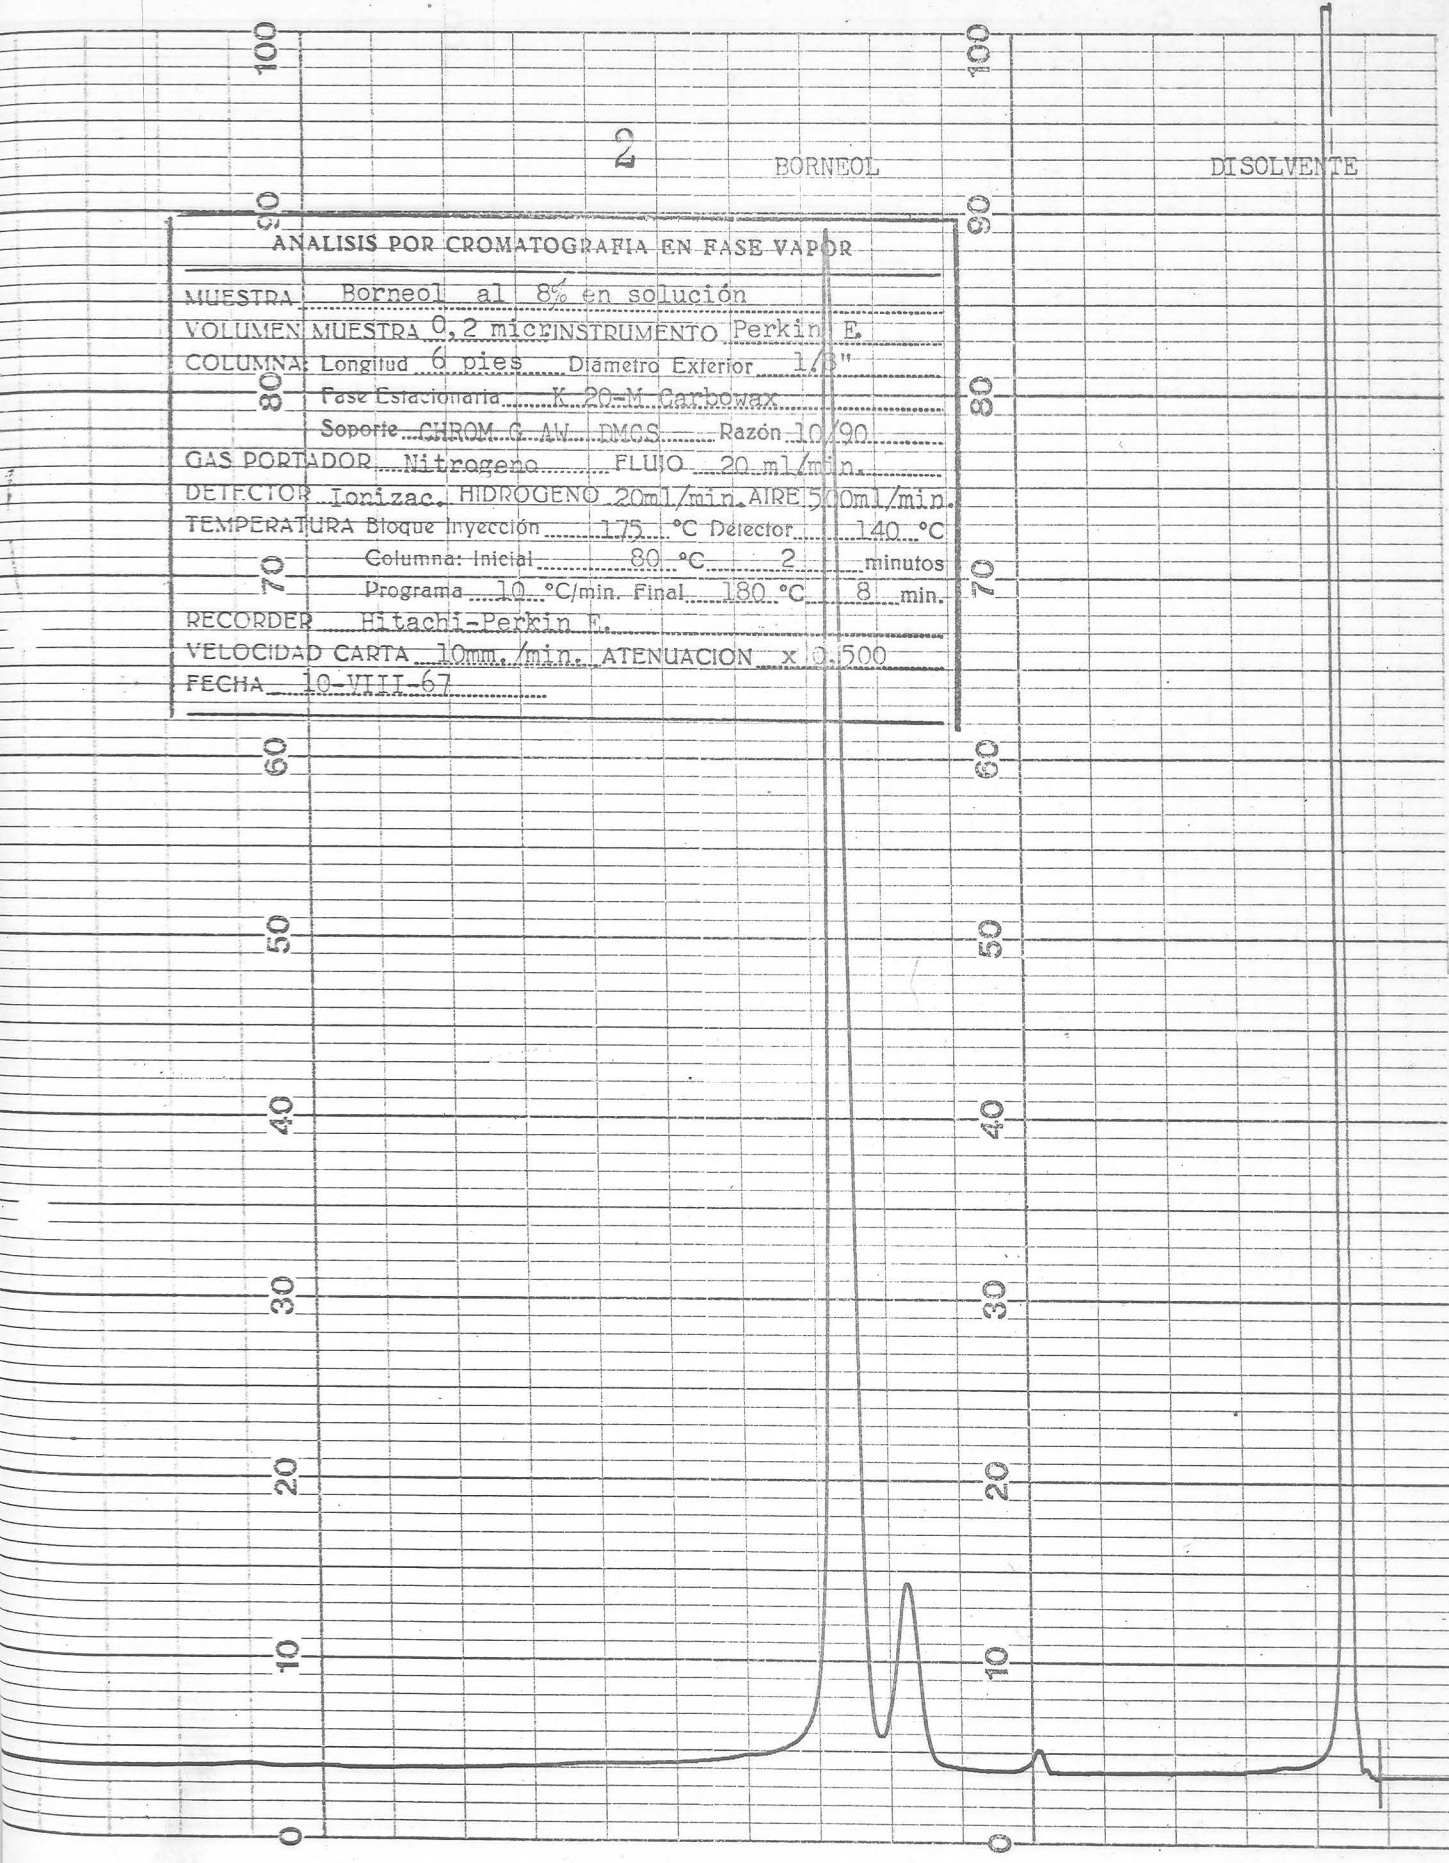 100 100
2 BORNEOL DISOLVENTE
90 90
ANALISIS POR CROMATOGRAFIA EN FASE VAPOR
MUESTRA Borneol al 8% en solución
VOLUMEN MUESTRA 0,2 micr INSTRUMENTO Perkin E.
COLUMNA: Longitud 6 pies Diámetro Exterior 1/8"
80 Fase Estacionaria K 20-M Carbowax 80
Soporte CHROM G AW DMCS Razón 10/90
GAS PORTADOR Nitrogeno FLUJO 20 ml/min.
DETECTOR Ionizac. HIDROGENO 20ml/min. AIRE 500ml/min.
TEMPERATURA Bloque Inyección 175 °C Detector 140 °C
Columna: Inicial 80 °C 2 minutos
70 70
Programa 10 °C/min. Final 180 °C 8 min.
RECORDER Hitachi-Perkin E.
VELOCIDAD CARTA 10mm./min. ATENUACION x 0.500
FECHA 10-VIII-67
60 60
50 50
40 40
30 30
20 20
10 10
0 0